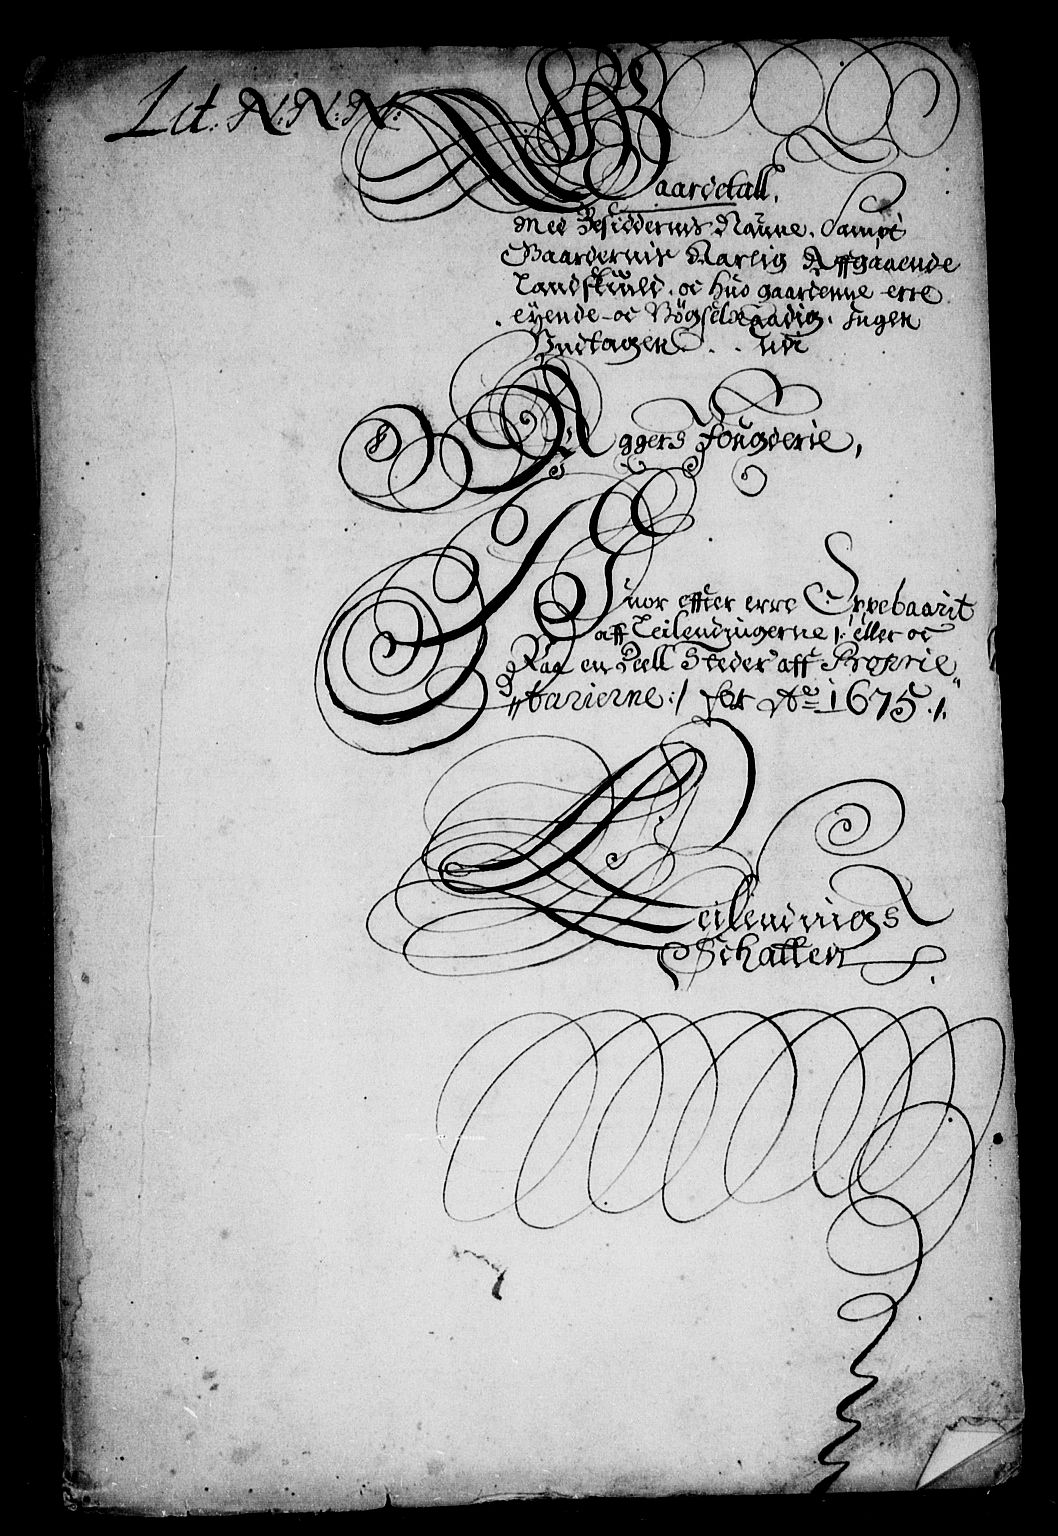 Lit. N:N:N:
Gaardetall,
Med Besiddernis Naune, Sampt
Gaardernis Aarlig Affgaaende
Landskuld, oc huo gaardenne erre
eyende oc Bögselraadig, Ingen
Undtagen . . udi
Aggers Fougderie,
Huor effter erre Oppebaarit
aff Leilendingerne /: eller oc
Paa en Deell Steder aff Proprie
tarierne :/ for Ao 1675 ./.
Leilendings
Schatten